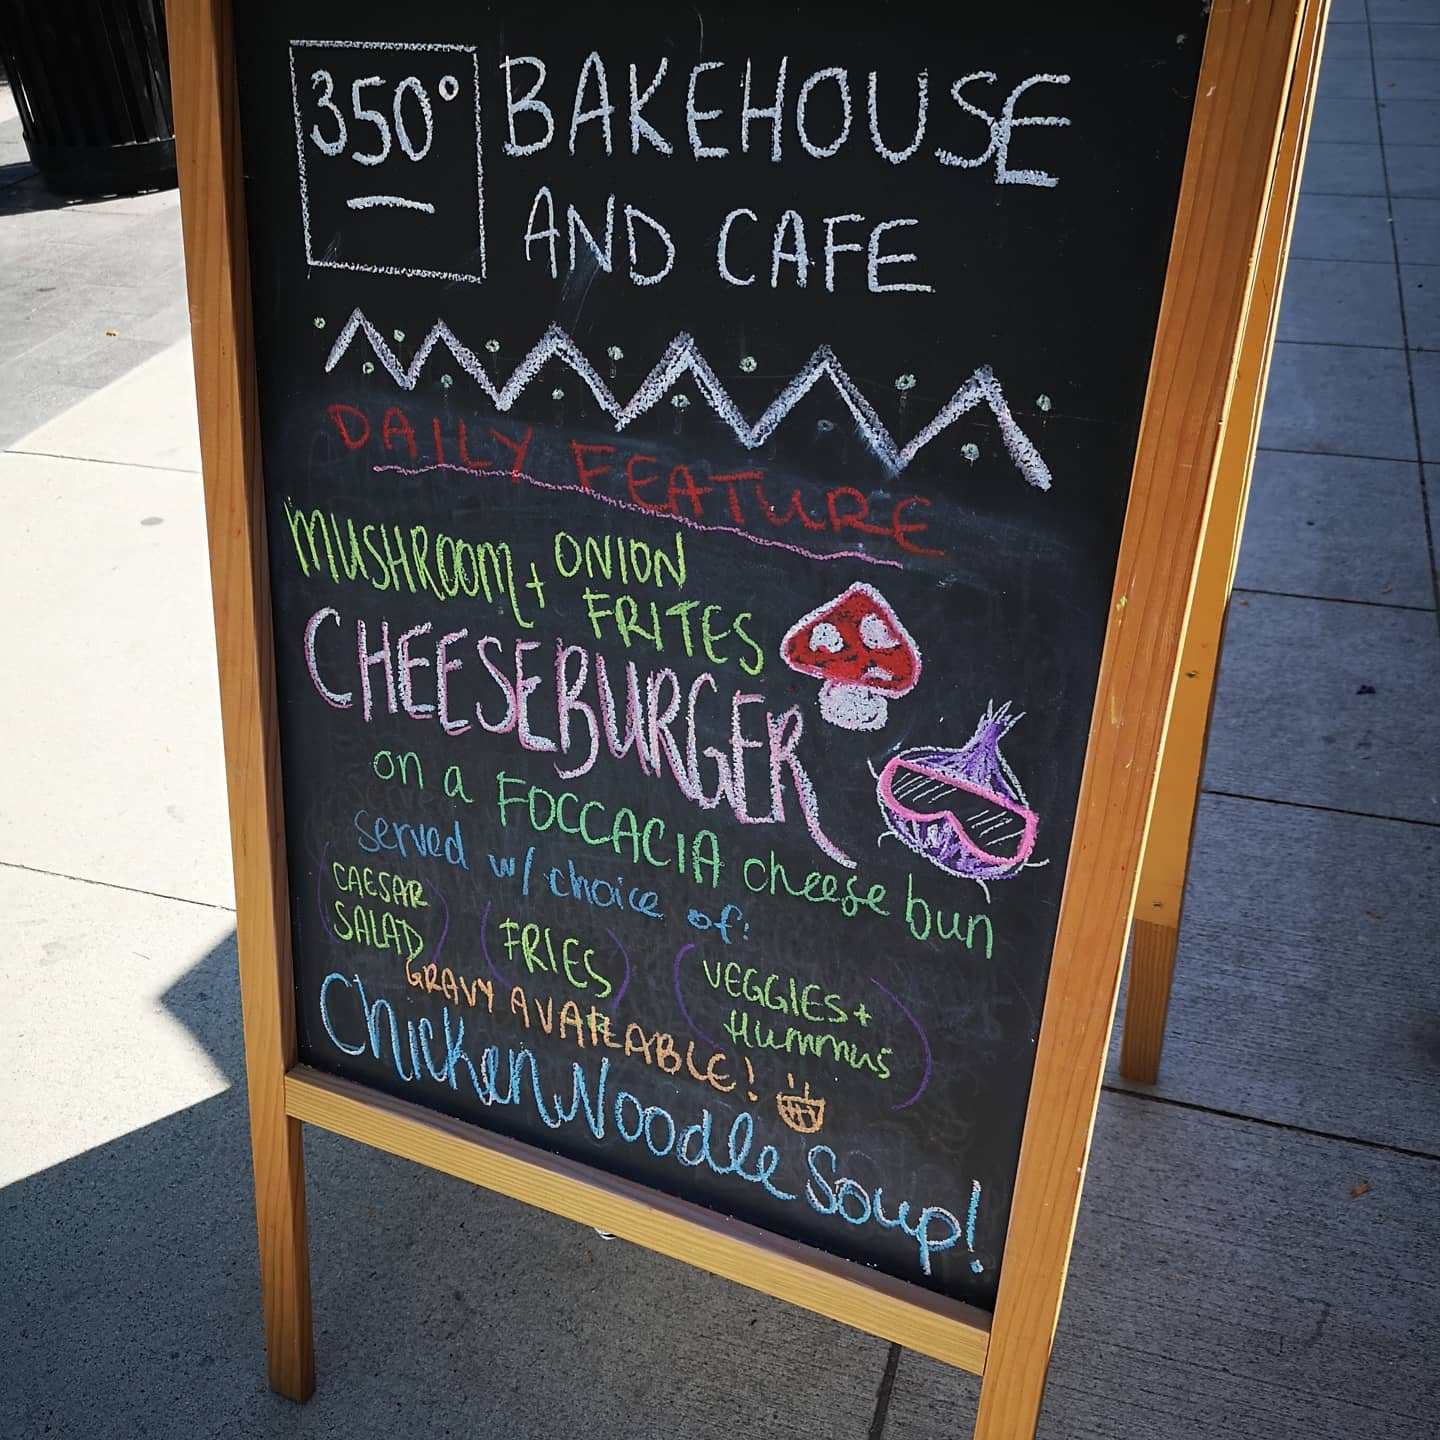 350° BAKEHOUSE
AND CAFE
DAILY FEATURE
MUSHROOM + ONION
FRITES
CHEESEBURGER
on a FOCCACIA cheese bun
served w/ choice of:
CAESAR
SALAD
FRIES
VEGGIES +
Hummus
GRAVY AVAILABLE!
Chicken Noodle Soup!